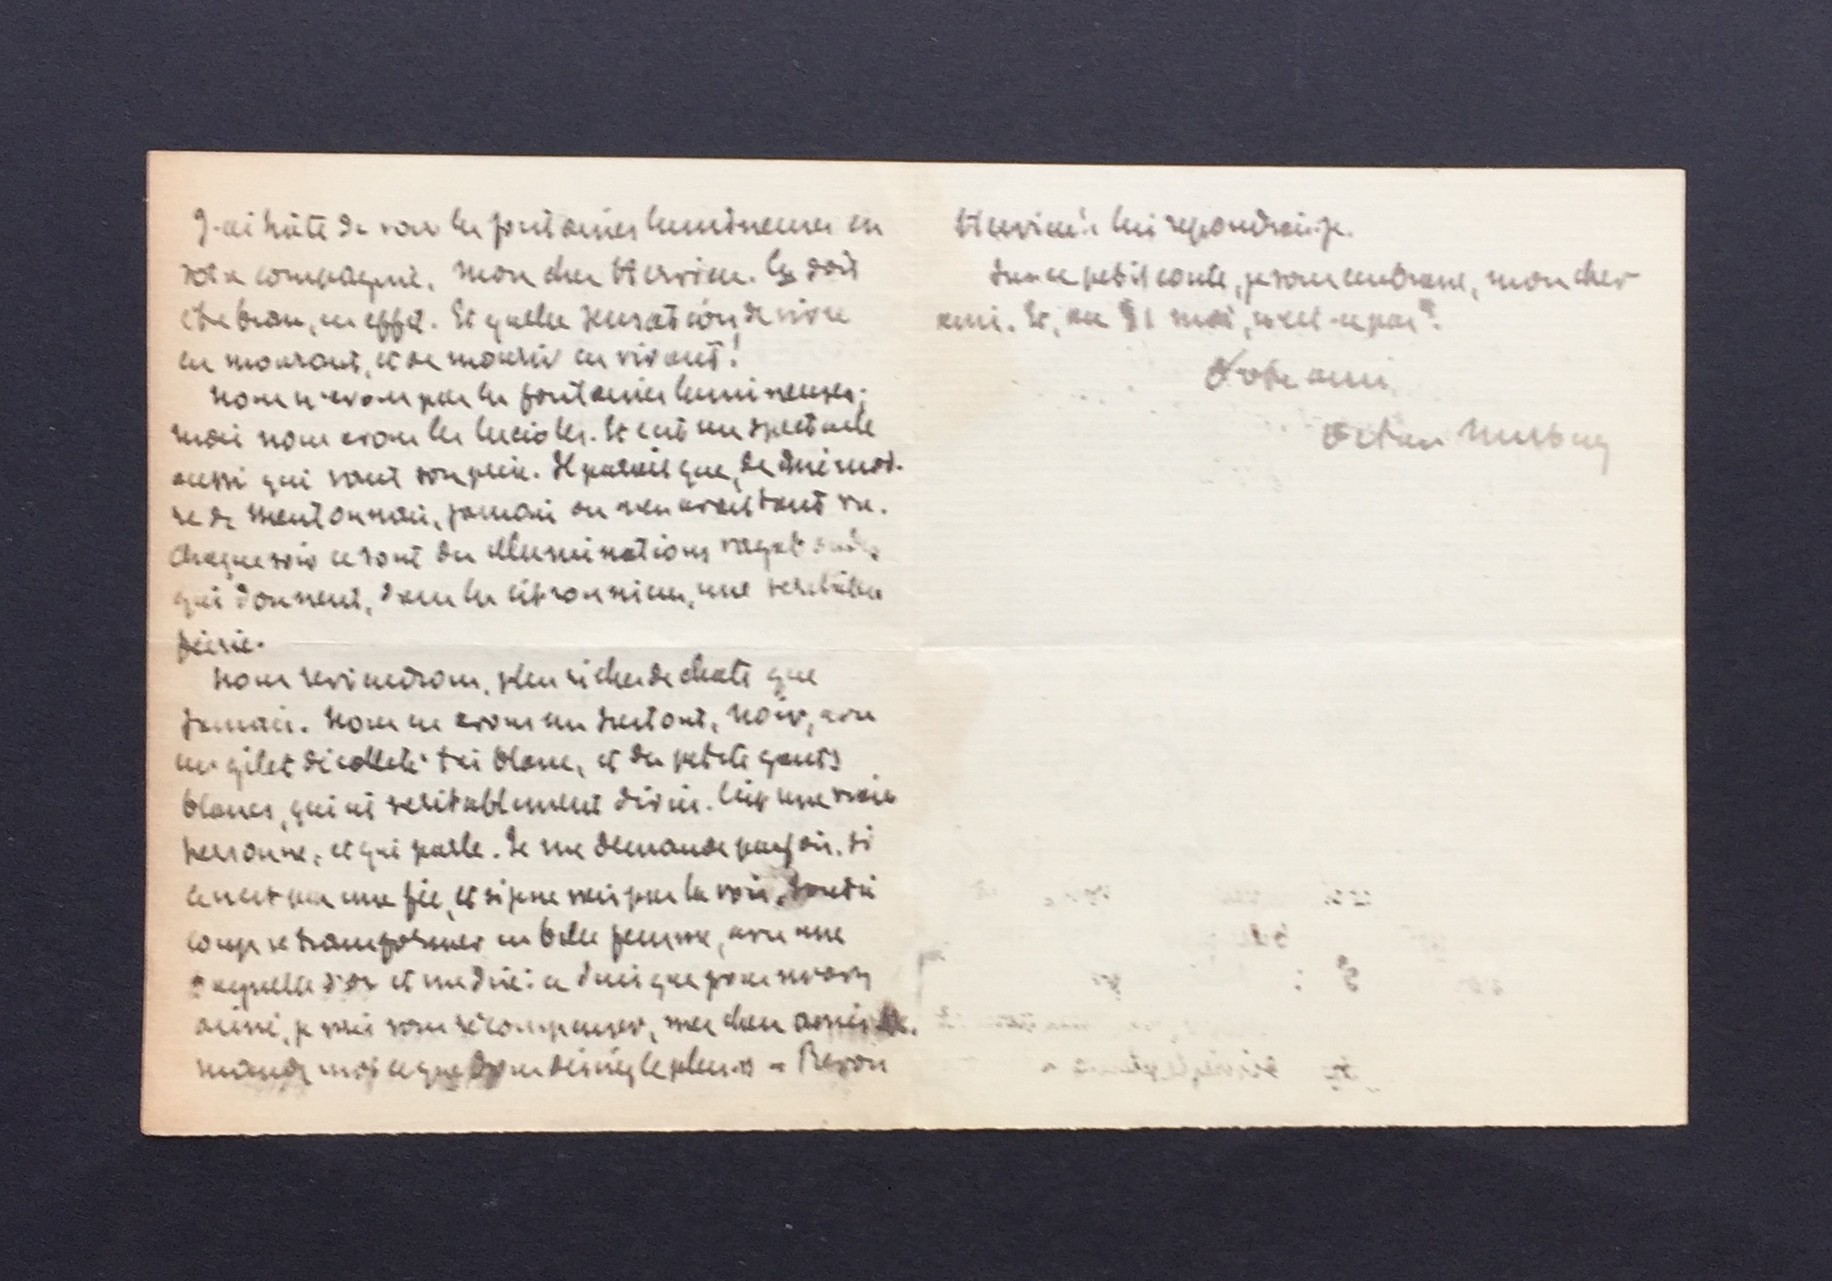 J'ai hâte de voir les fontaines lumineuses en
votre compagnie, mon cher Hervieu. Ce doit
être beau, en effet. Et quelle sensation de vivre
en mourant, et de mourir en vivant!
Nous n'avons pas les fontaines lumineuses;
mais nous avons les lucioles. Et c'est un spectacle
aussi qui vaut son prix. Il paraît que, de mémoi-
re de Mentonnais, jamais on n'en avait tant vu.
Chaque soir ce sont des illuminations vagabondes
qui donnent, dans les citronniers, une véritable
féerie.
Nous reviendrons, plus riches de chats que
jamais. Nous en avons un surtout, noir, avec
un gilet décolleté très blanc, et des petits gants
blancs, qui est véritablement divin. C'est une vraie
personne, et qui parle. Je me demande parfois, si
ce n'est pas une fée, et si je ne vais pas la voir, tout à
coup se transformer en belle femme, avec une
baguette d'or et me dire: ce que pour
aussi, je vais vous récompenser, mes chers amis.
moi ce que désirez le plus » « Revoir
Hervieu! » lui répondrai-je.
Sur ce petit conte, je vous embrasse, mon cher
ami. Et, au 31 mai, n'est-ce pas?
Votre ami
Octave Mirbeau